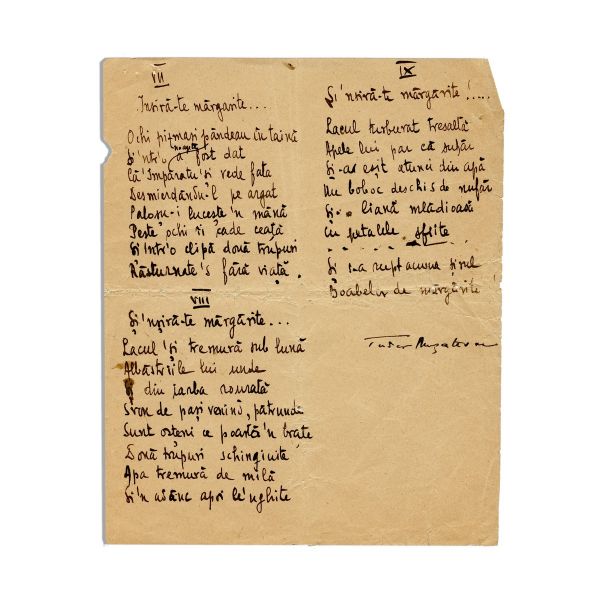 VII
Înșiră-te mărgărite....
Ochi pizmași pândeau în taină
Și 'ntr'o noapte a fost dat
Că 'Împăratu'și vede fata
Desmierdându-l pe argat
Paloșu-i lucește 'n mână
Peste ochi îi cade ceață
Și 'ntr'o clipă două trupuri
Răsturnate's fără viață.
VIII
Și 'nșiră-te mărgărite...
Lacul 'și tremură sub lună
Albăstriile lui unde
Și din iarba rourată
Svon de pași venind, pătrunde
Sunt osteni ce poartă 'n brațe
Două trupuri schingiuite
Apa tremură de milă
Și 'n adânc apoi le 'nghite
IX
Și 'nșiră-te mărgărite!.....
Lacul turburat tresaltă
Apele lui par că sufăr
Și-au eșit atunci din apă
Un boboc deschis de nufăr
Și-o liană mlădioasă
Cu petalele sfiite
- - - - - - - - - -
Și s-a rupt acuma șirul
Boabelor de mărgărite!
Tudor Mușatescu